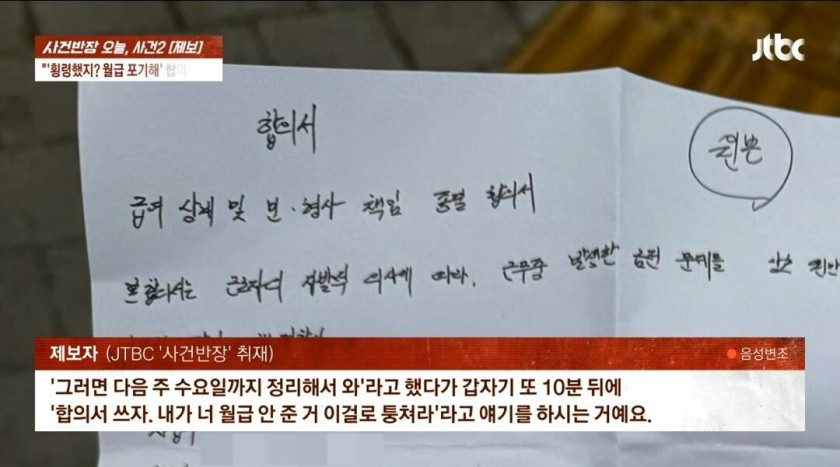 사건반장 오늘, 사건2 [제보]
"'횡령했지? 월급 포기해' 합의
JTBC
합의서
원본
급여 상계 및 민·형사 책임 종결 합의서
본 합의서는 근로자의 자발적 의사에 따라, 근무중 발생한 금전 문제를
제보자 (JTBC '사건반장' 취재)
음성변조
'그러면 다음 주 수요일까지 정리해서 와'라고 했다가 갑자기 또 10분 뒤에
'합의서 쓰자. 내가 너 월급 안 준 거 이걸로 퉁쳐라'라고 얘기를 하시는 거예요.